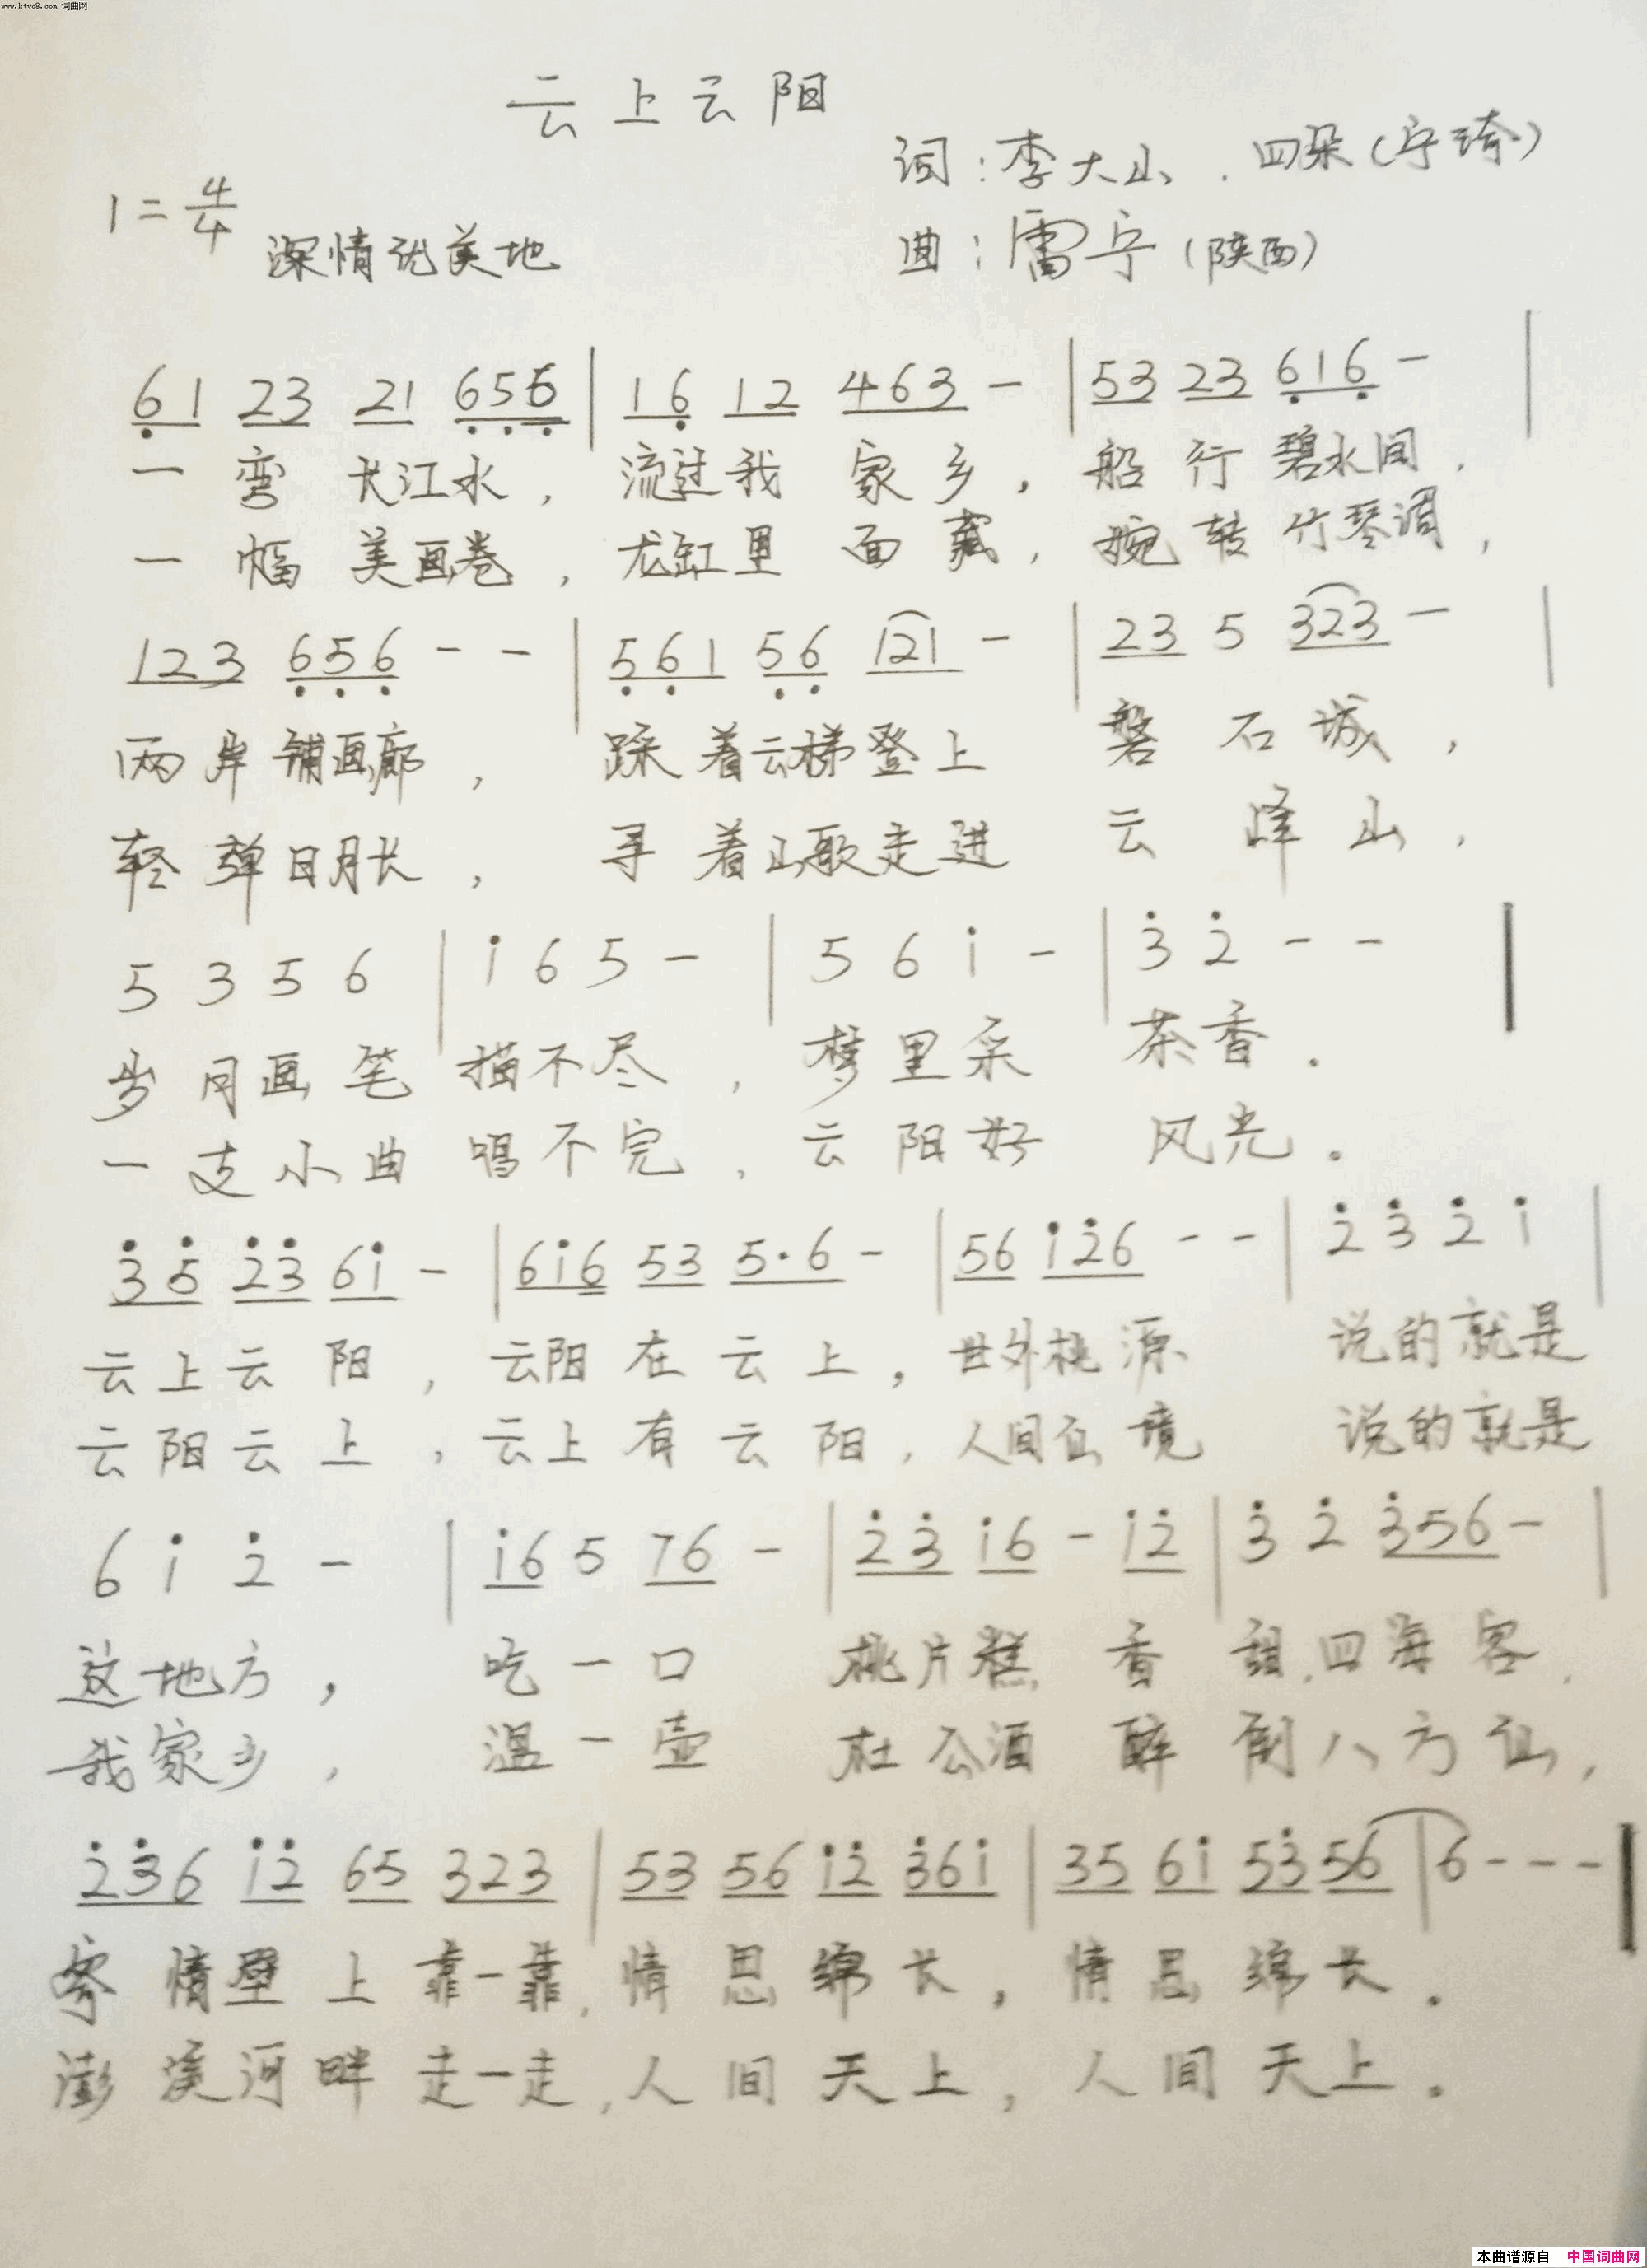 www.ktvc8.com 词曲网
云上云阳
词:李大山、四朵(宁琦)
1=4/4
深情优美地
曲:雷宁(陕西)
6̣1 23 21 6̣5̣5̣ | 16̣ 12 463 - | 53 23 6̣16̣ - |
一弯长江水,流过我家乡,船行碧水间,
一幅美画卷,龙缸里面藏,婉转竹琴调,
123 6̣5̣6̣ - - | 5̣6̣1 5̣6̣ 121 - | 23 5 323 - |
两岸铺画廊,踩着云梯登上磐石城,
轻弹日月长,寻着山歌走进云峰山,
5 3 5 6 | 1̇ 6 5 - | 5 6 1̇ - | 3̇ 2̇ - - |
岁月画笔描不尽,梦里采茶香.
一支小曲唱不完,云阳好风光.
3̇5̇ 2̇3̇ 61̇ - | 61̇6 53 5·6 - | 56 1̇2̇6 - - | 2̇ 3̇ 2̇ 1̇ |
云上云阳,云阳在云上,世外桃源 说的就是
云阳云上,云上有云阳,人间仙境 说的就是
6 1̇ 2̇ - | 1̇6 5 76 - | 2̇3̇ 1̇6 - 1̇2̇ | 3̇ 2̇ 3̇56 - |
这地方,吃一口桃片糕香甜四海客,
我家乡,温一壶杜公酒醉倒八方仙,
2̇3̇6 1̇2̇ 65 323 | 53 56 1̇2̇ 3̇61̇ | 35 61̇ 53̇ 56 | 6 - - - |
情壁上靠一靠,情思绵长,情思绵长.
澎溪河畔走一走,人间天上,人间天上.
本曲谱源自 中国词曲网